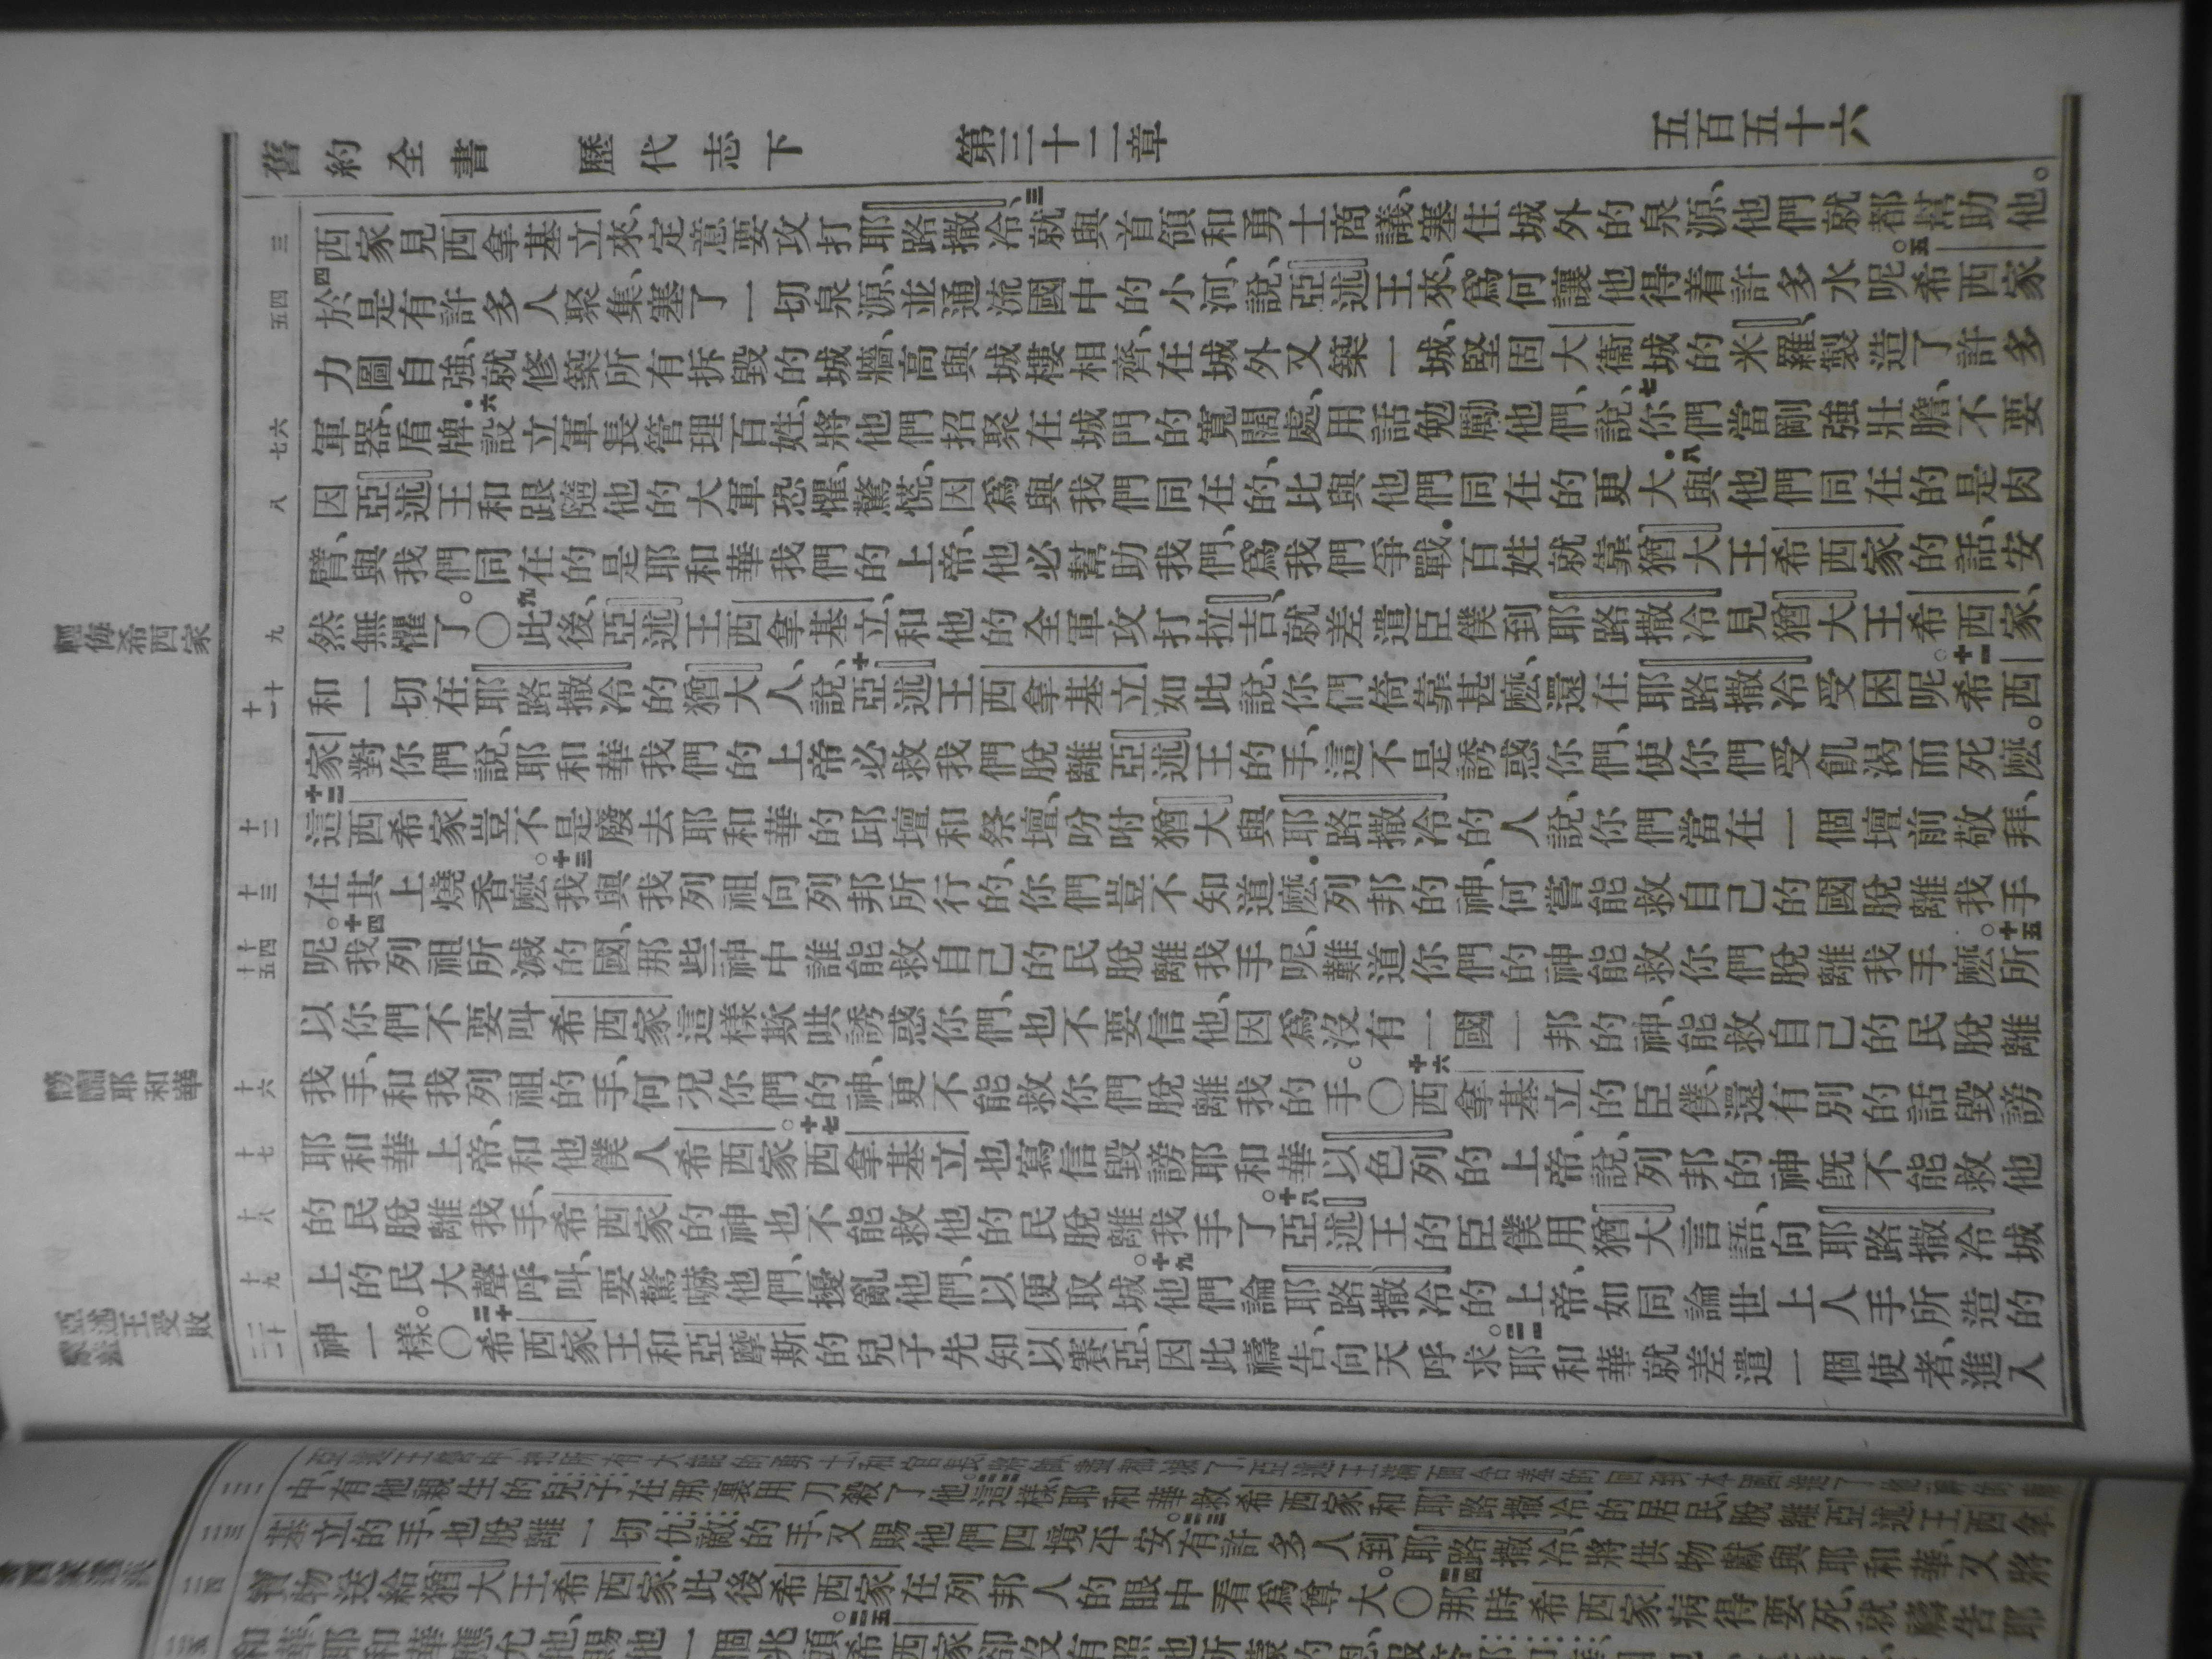 舊約全書 歷代志下 第三十二章 五百五十六
三
西家見西拿基立來、定意要攻打耶路撒冷、三就與首領和勇士商議、塞住城外的泉源、他們就都幫助他。
五四
四於是有許多人聚集、塞了一切泉源、並通流國中的小河、說、亞述王來、爲何讓他得着許多水呢。五希西家
力圖自強、就修築所有拆毀的城牆、高與城樓相齊、在城外又築一城、堅固大衞城的米羅、製造了許多
七六
軍器、盾牌．六設立軍長管理百姓、將他們招聚在城門的寬闊處、用話勉勵他們、說、七你們當剛強壯膽、不要
八
因亞述王和跟隨他的大軍恐懼、驚慌、因爲與我們同在的、比與他們同在的更大．八與他們同在的是肉
臂、與我們同在的是耶和華我們的上帝、他必幫助我們、爲我們爭戰．百姓就靠猶大王希西家的話、安
九
然無懼了。〇九此後、亞述王西拿基立、和他的全軍攻打拉吉、就差遣臣僕到耶路撒冷見猶大王希西家、
輕侮希西家
十一十
和一切在耶路撒冷的猶大人、說、十亞述王西拿基立如此說、你們倚靠甚麽、還在耶路撒冷受困呢。十一希西
家對你們說、耶和華我們的上帝必救我們脫離亞述王的手、這不是誘惑你們、使你們受飢渴而死麽。
十二
十二這西希家豈不是廢去耶和華的邱壇和祭壇、吩咐猶大與耶路撒冷的人說、你們當在一個壇前敬拜、
十三
在其上燒香麽。十三我與我列祖向列邦所行的、你們豈不知道麽．列邦的神、何嘗能救自己的國脫離我手
十五十四
呢。十四我列祖所滅的國、那些神中誰能救自己的民脫離我手呢、難道你們的神能救你們脫離我手麽。十五所
以你們不要叫希西家這樣欺哄誘惑你們、也不要信他、因爲沒有一國一邦的神、能救自己的民脫離
十六
我手、和我列祖的手、何況你們的神、更不能救你們脫離我的手。〇十六西拿基立的臣僕、還有別的話毀謗
謗讟耶和華
十七
耶和華上帝、和他僕人希西家。十七西拿基立也寫信毀謗耶和華以色列的上帝、說、列邦的神既不能救他
十八
的民脫離我手、希西家的神也不能救他的民脫離我手了。十八亞述王的臣僕用猶大言語、向耶路撒冷城
十九
上的民大聲呼叫、要驚嚇他們、擾亂他們、以便取城。十九他們論耶路撒冷的上帝、如同論世上人手所造的
二十
神一樣。〇二十希西家王和亞麽斯的兒子先知以賽亞、因此禱告、向天呼求。二一耶和華就差遣一個使者、進入
亞述王受敗
中、有他親生的兒子在那裏用刀殺了他。這樣、耶和華救希西家和耶路撒冷的居民、脫離亞述王西拿
基立的手、也脫離一切仇敵的手、又賜他們四境平安。有許多人到耶路撒冷、將供物獻與耶和華、又將
寶物送給猶大王希西家．此後希西家在列邦人的眼中看爲尊大。〇二四那時希西家病得要死、就禱告耶